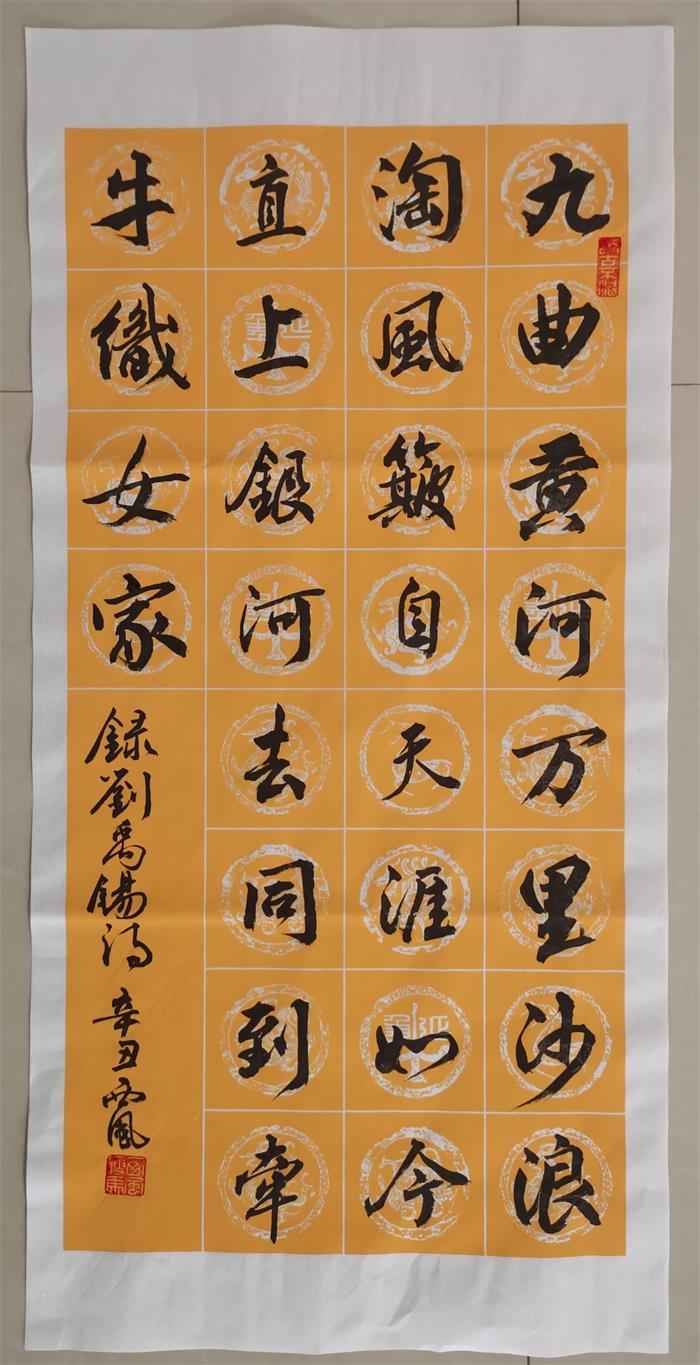 九曲黄河万里沙浪
淘風簸自天涯如今
直上銀河去同到牵
牛織女家
録劉禹錫詩 辛丑 西風